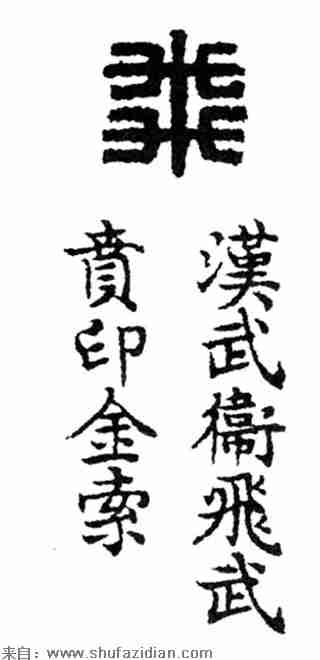 飛
漢武衞飛武
賁印金索
来自：www.shufazidian.com